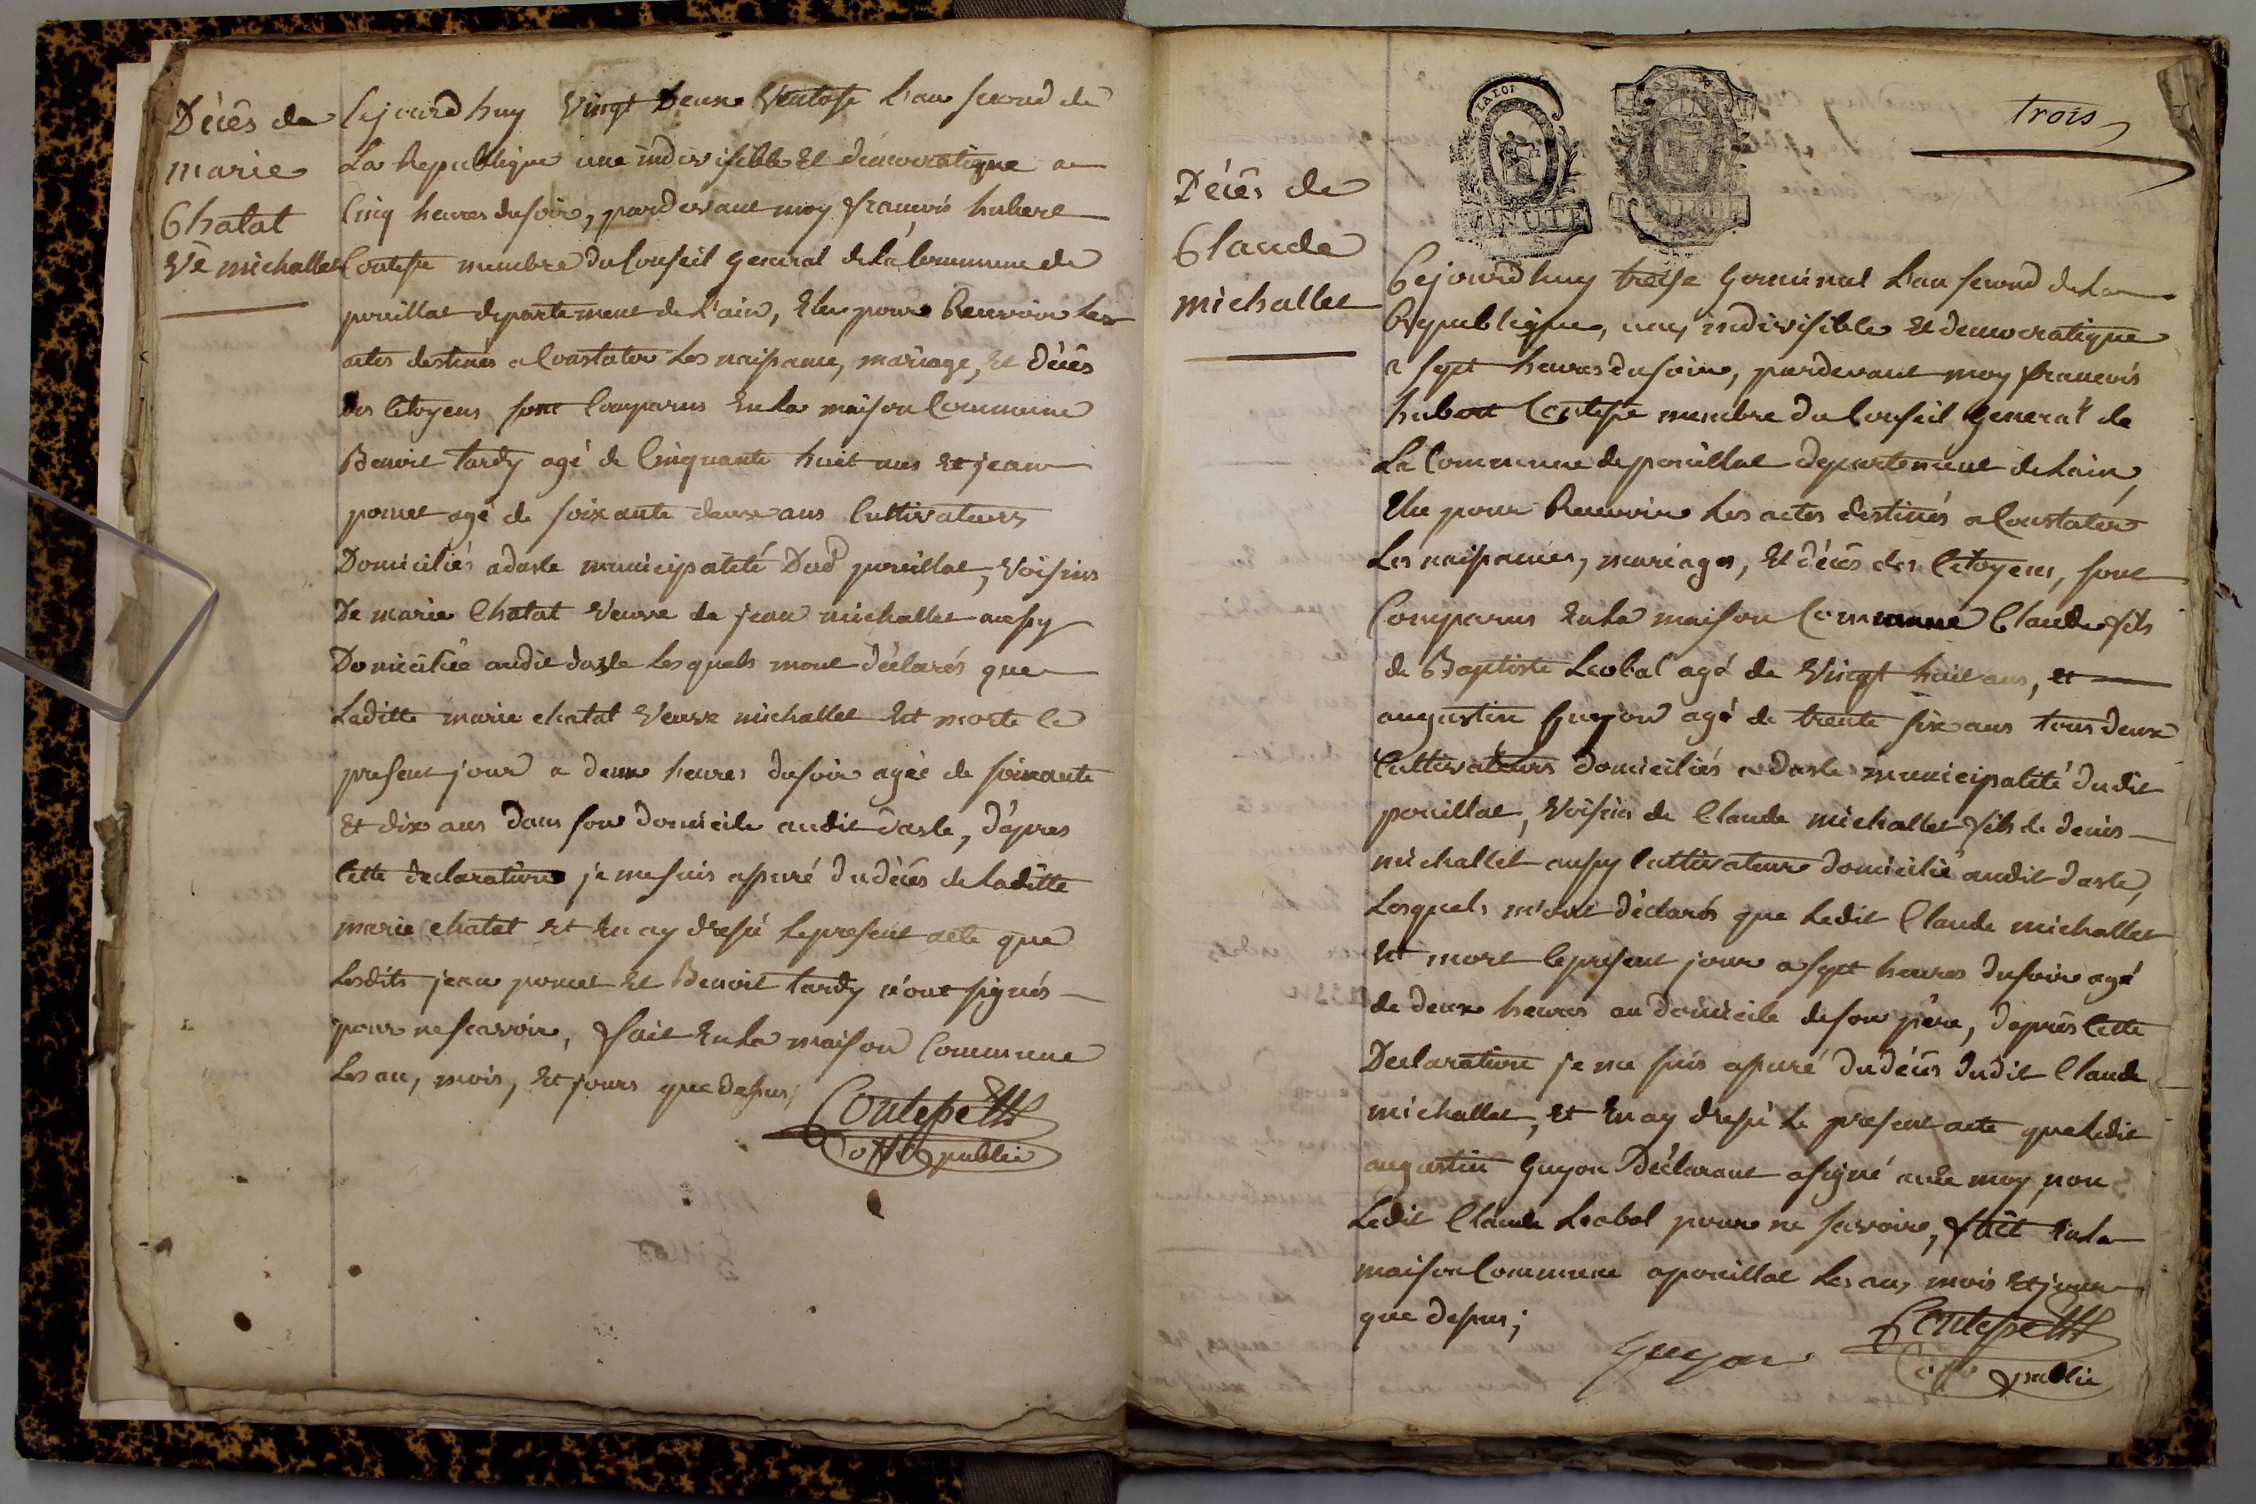 Décès de
marie
Chatat
Vе michallet
Cejourd huy vingt Deux Ventose L'an second de
La Republique une indivisible Et democratique a
Cinq heures du soir, pardevant moy francois hubert
Contesse membre du Conseil General de la Commune de
pouillat departement de L'ain, Elu pour Recevoir Les
actes destinés a Constater Les naissance, mariage, Et décès
des Citoyens sont Comparus En La maison Commune
Benoit tardy agé de Cinquante huit ans Et jean
poncet agé de soixante deux ans Cultivateurs
Domiciliés a dasle municipalité Dud pouillat, Voisins
De marie Chatat Veuve de jean michallet aussy
Domiciliée audit dasle Lesquels mont déclarés que
Laditte marie chatat Veuve michallet Est morte le
present jour a deux heures du soir agée de soixante
Et dix ans dans son domicile audit dasle, d'apres
Cette declaration je me suis assuré du décès de Laditte
marie chatat Et En ay dressé Le present acte que
Lesdits jean poncet Et Benoit tardy n'ont signés
pour ne scavoir, fait En La maison Commune
Les an, mois, Et jours que dessus;
Contesse
off public
trois
LA LOI
Décès de
Claude
michallet
Cejourd huy treise Germinal L'an second de La
Republique, une, indivisible Et democratique
a sept heures du soir, pardevant moy francois
hubert Contesse membre du Conseil General de
La Commune de pouillat departement de Lain,
Elu pour Recevoir Les actes destinés a Constater
Les naissances, mariages, Et décès des Citoyens, sont
Comparus En La maison Commune Claude fils
de Baptiste Leobal agé de Vingt huit ans, et
augustin Guyon agé de trente six ans tous deux
Cultivateurs domiciliés a dasle municipalité dudit
pouillat, Voisin de Claude michallet fils de denis
michallet aussy Cultivateur domicilié audit dasle,
Lesquels m'ont déclarés que Ledit Claude michallet
Est mort le present jour a sept heures du soir agé
de deux heures au domicile de son père, d'après Cette
Declaration je me suis assuré du décès dudit Claude
michallet, Et En ay dressé Le present acte que Ledit
augustin Guyon Déclarant a signé avec moy, non
Ledit Claude Leobal pour ne scavoire, fait En La
maison Commune a pouillat Les an, mois Et jour
que dessus;
Guyon
Contesse
off public